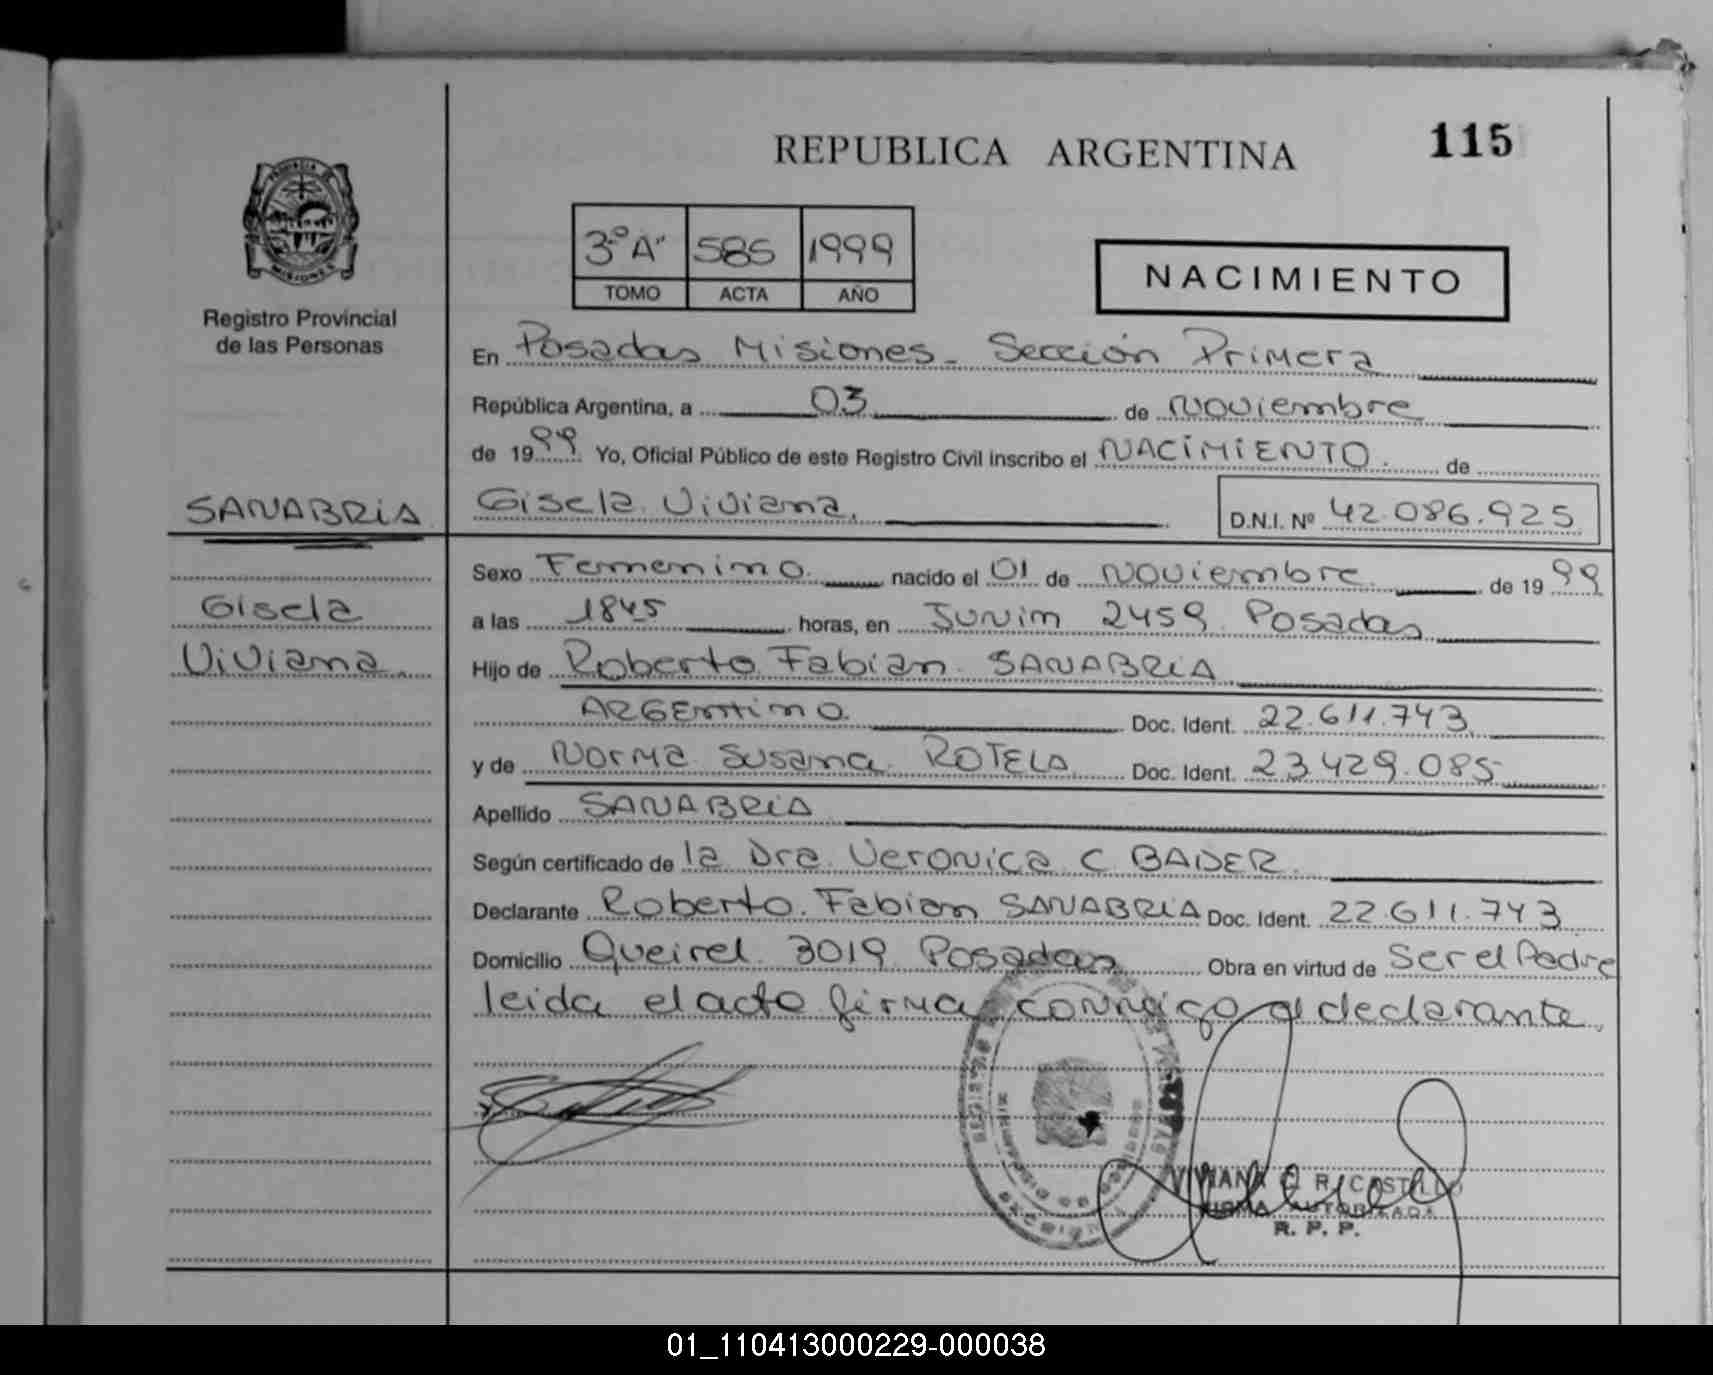 115
REPUBLICA ARGENTINA
PROVINCIA DE
MISIONES
3º "A" 585 1999
TOMO ACTA AÑO
NACIMIENTO
Registro Provincial
de las Personas
En Posadas Misiones - Sección Primera
República Argentina, a 03 de Noviembre
de 1999 Yo, Oficial Público de este Registro Civil inscribo el NACIMIENTO de
SANABRIA Gisela Viviana. D.N.I. Nº 42.086.925
Sexo Femenino nacido el 01 de Noviembre de 1999
Gisela
a las 1845 horas, en Junin 2459 Posadas
Viviana.
Hijo de Roberto Fabian SANABRIA
ARGENtino. Doc. Ident. 22.611.743
y de Norma Susana ROTELA Doc. Ident. 23.429.085
Apellido SANABRIA
Según certificado de la Dra. Veronica C BADER.
Declarante Roberto Fabian SANABRIA Doc. Ident. 22.611.743
Domicilio Queirel 3019 Posadas Obra en virtud de Ser el Padre
leida el acto firma conmigo el declarante.
VIVIANA R. CASTILLO
FIRMA AUTORIZADA
R. P. P.
01_110413000229-000038